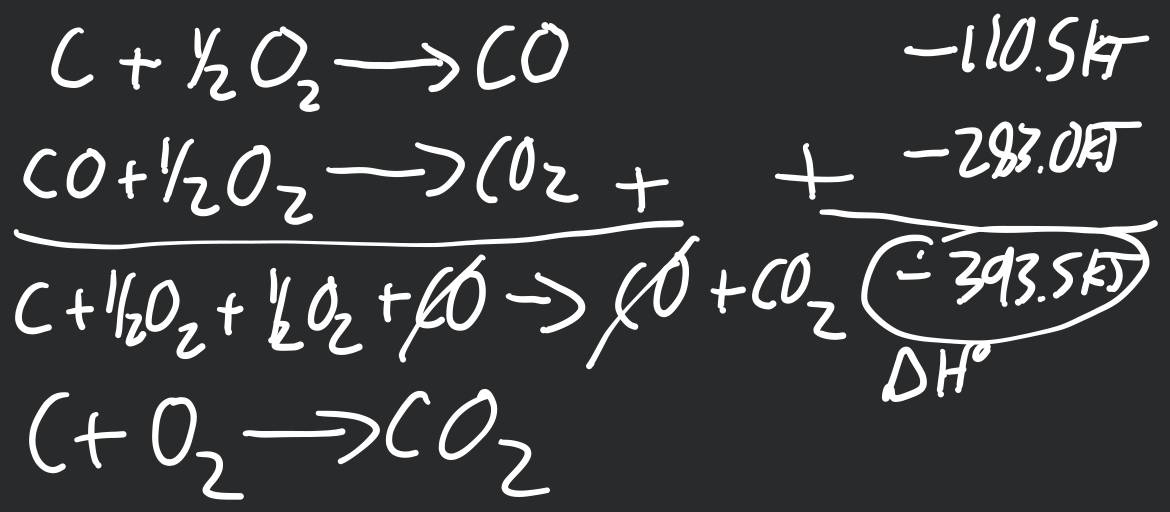 C + ½O₂ → CO -110.5kJ
CO + ½O₂ → CO₂ + + -283.0kJ
C + ½O₂ + ½O₂ + CO → CO + CO₂ -393.5kJ
ΔH°
C + O₂ → CO₂